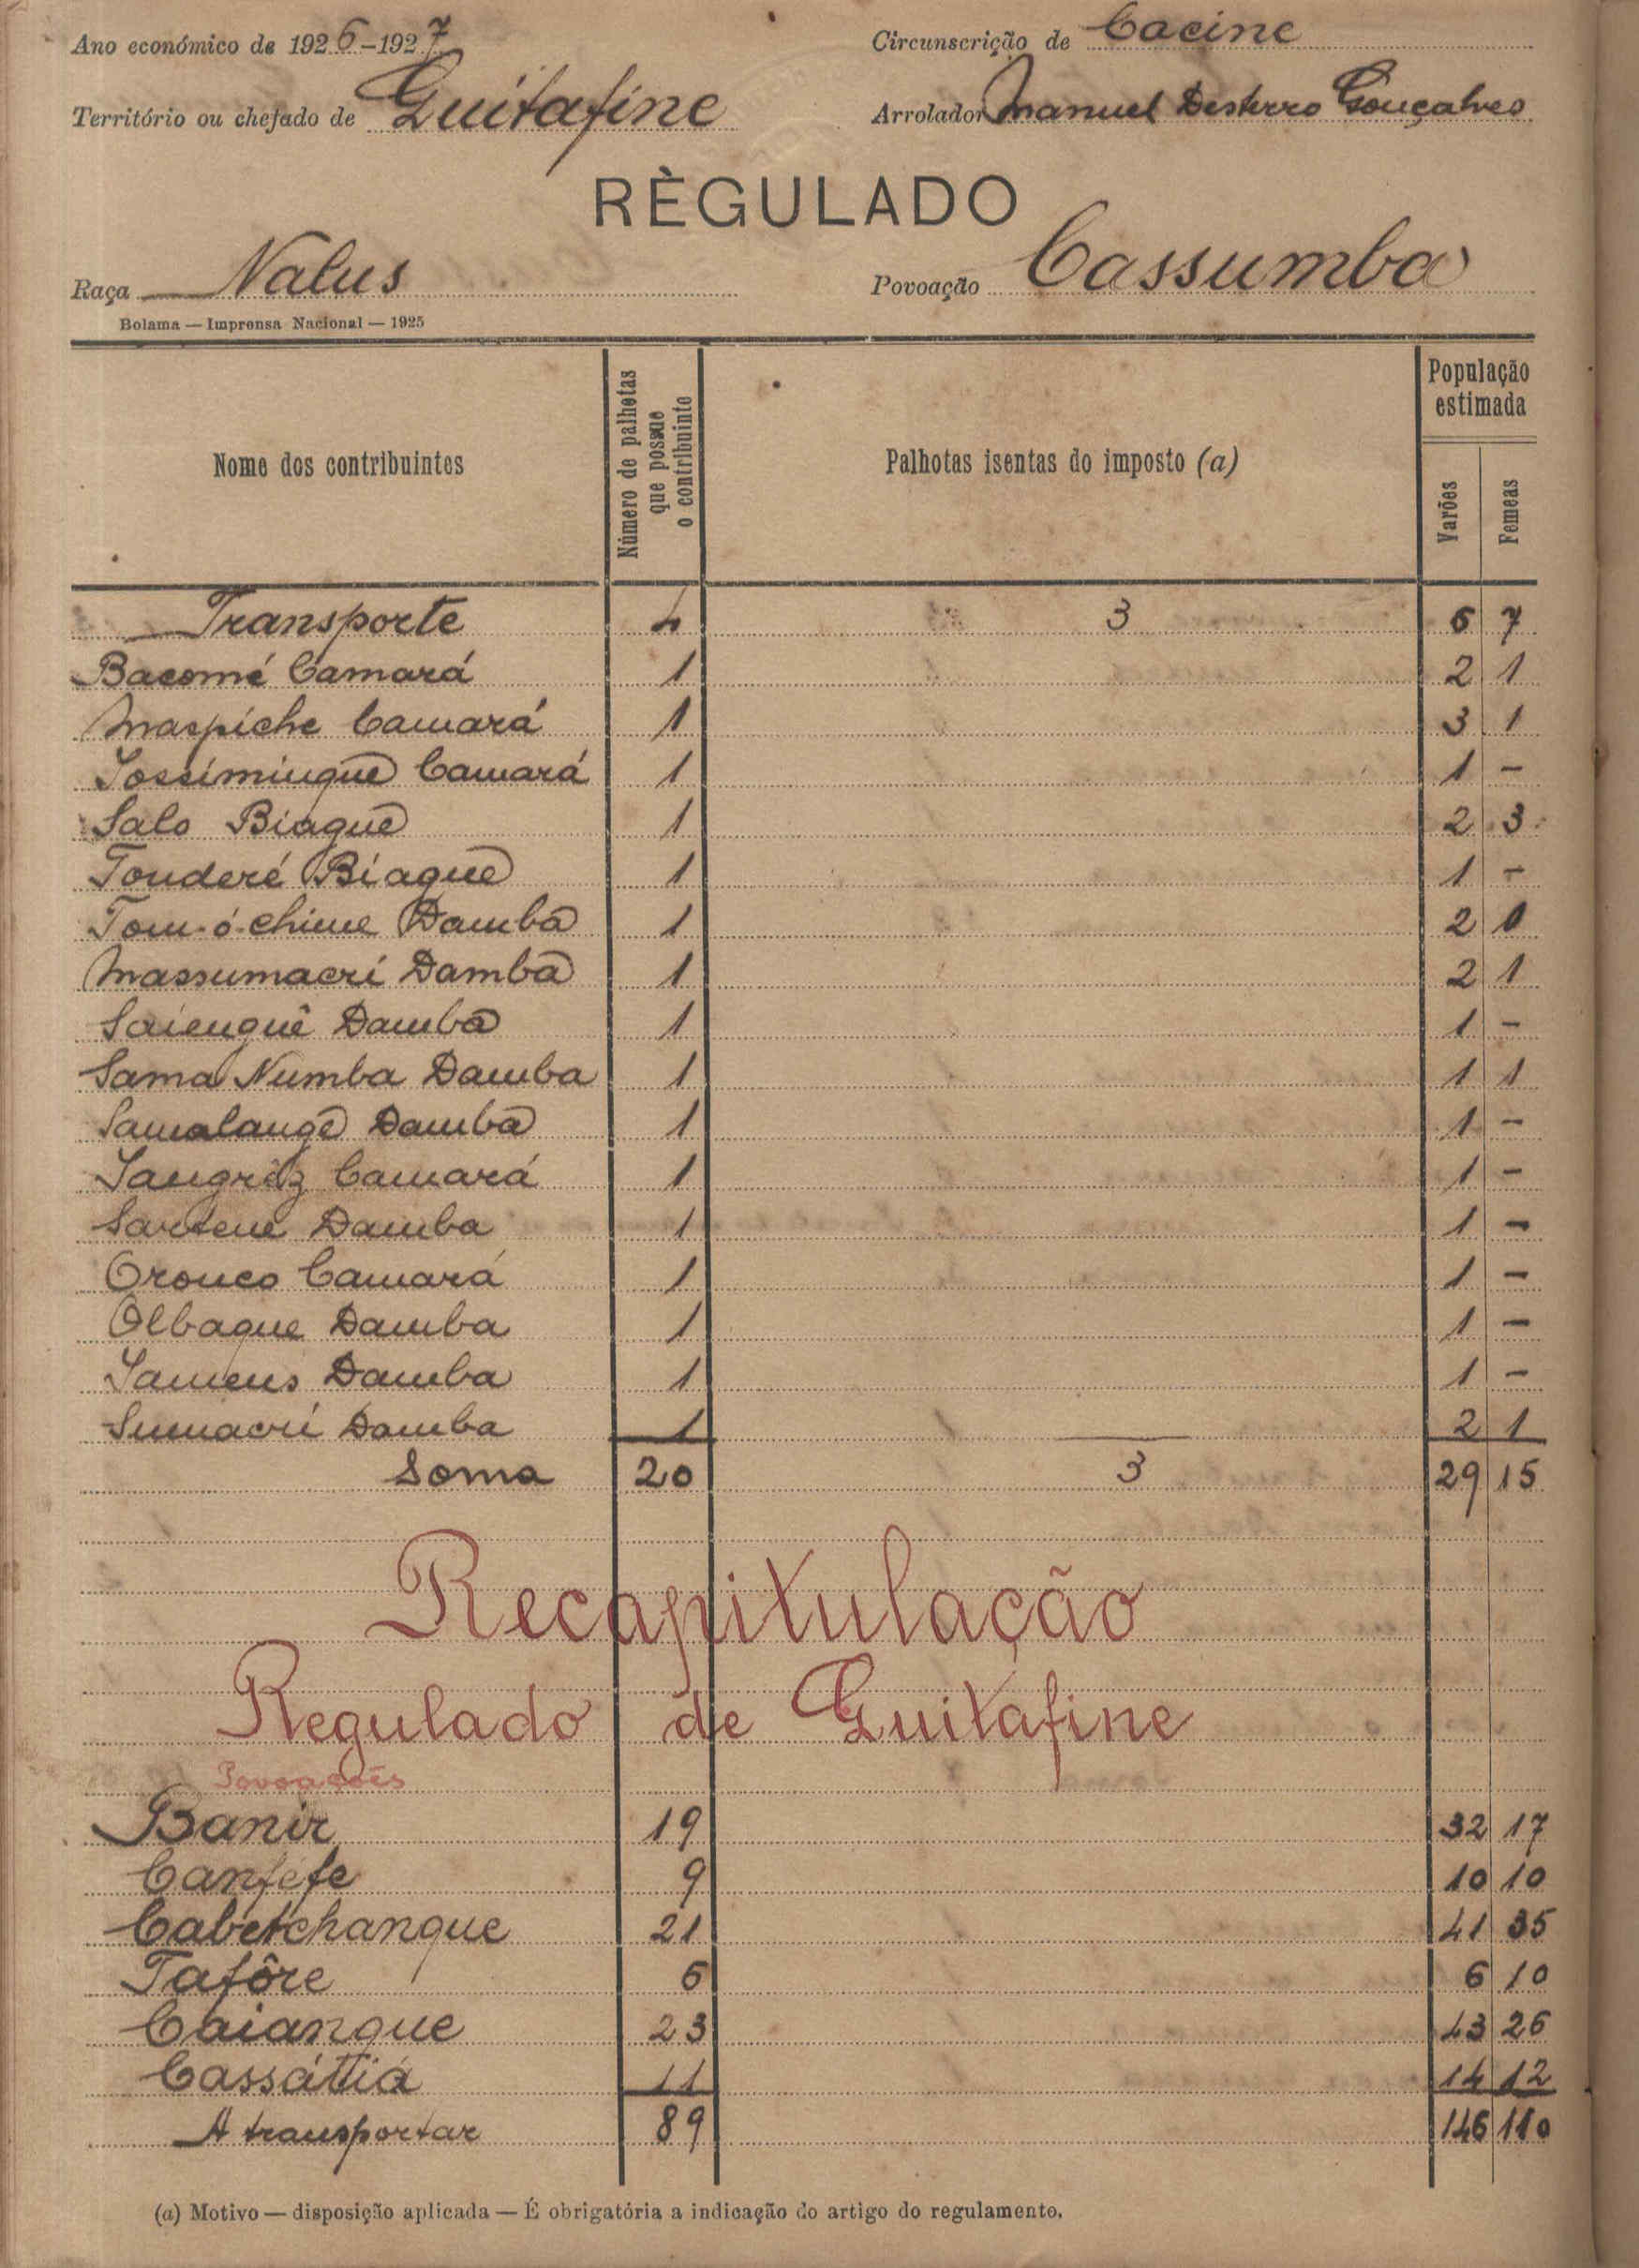 Ano económico de 1926-1927 Circunscrição de Cacine
Território ou chefado de Guitafine Arrolador Manuel Desterro Gonçalves
RÈGULADO
Raça Nalus Povoação Cassumba
Bolama — Imprensa Nacional — 1925
Nome dos contribuintes
Número de palhotas que possue o contribuinte
Palhotas isentas do imposto (a)
População estimada
Varões Femeas
Transporte 4 3 6 7
Bacomé Camará 1 2 1
Maspiche Camará 1 3 1
Camará 1 1 -
Salo Biague 1 2 3
Tonderé Biague 1 1 -
Tom-ó-chime Damba 1 2 0
Massumacri Damba 1 2 1
Saienguê Damba 1 1 -
Sama Numba Damba 1 1 1
Samalange Damba 1 1 -
Camará 1 1 -
Damba 1 1 -
Oronco Camará 1 1 -
Olbaque Damba 1 1 -
Damba 1 1 -
Sumacri Damba 1 2 1
Soma 20 3 29 15
Recapitulação
Regulado de Guitafine
Povoações
Banir 19 32 17
Canféfe 9 10 10
Cabetchanque 21 41 35
Tafôre 6 6 10
Caianque 23 43 26
Cassátiá 11 14 12
A transportar 89 146 110
(a) Motivo — disposição aplicada — É obrigatória a indicação do artigo do regulamento.